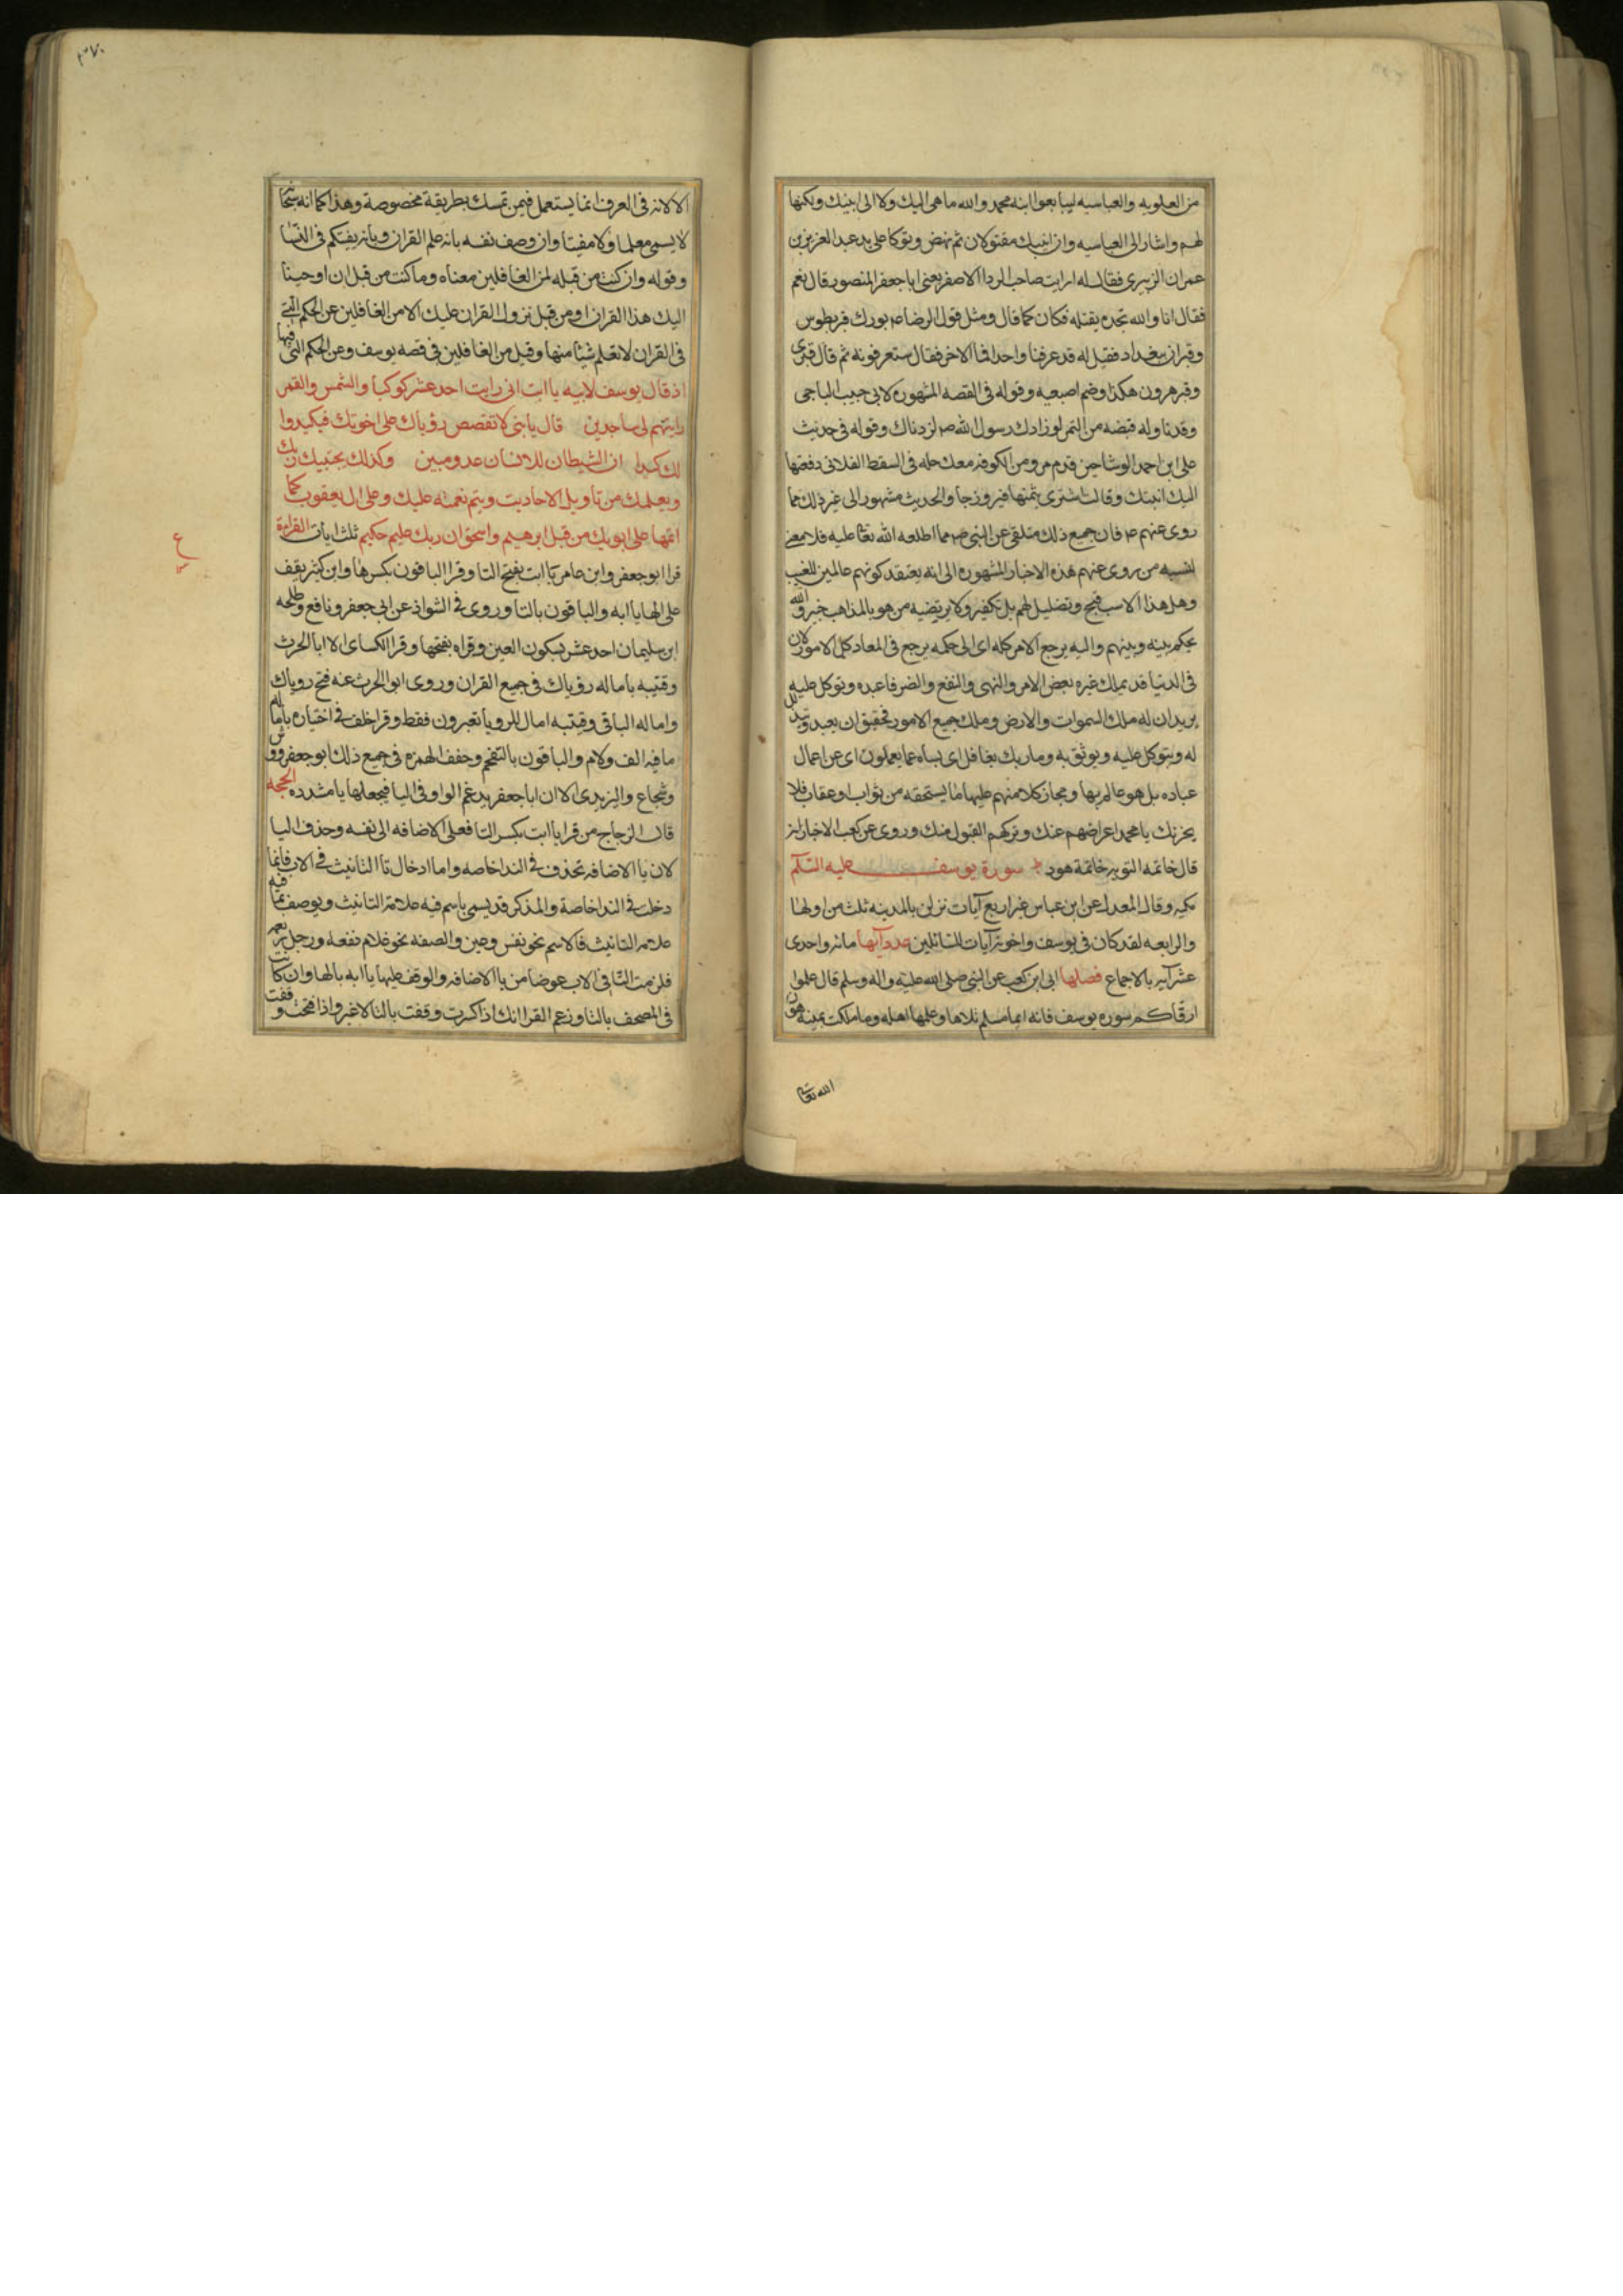 من العلويه والعباسيه ليبايعوا ابنه محمد والله ما هى اليك ولا الى ابنيك ولكنها
لهم واشار الى العباسيه وان ابنيك مقتولان ثم نهض وتوكا على يد عبد العزيز بن
عمران الزهرى فقال له ارايت صاحب الردا الاصفر يعنى ابا جعفر المنصور قال نعم
فقال انا والله نجده يقتله فكان كما قال ومثل قول الرضا ع بورك قبر بطوس
وقبران ببغداد فقيل له قد عرفنا واحدا فما الاخر فقال ستعرفونه ثم قال قبرى
وقبر هرون هكذا وضم اصبعيه وقوله فى القصه المشهوره لابى حبيب الباجى
وقد ناوله قبضه من التمر لو زادك رسول الله ص لزدناك وقوله فى حديث
على ابن احمد الوشا حين قدم مرو من الكوفه معك حله فى السقط الفلانى دفعتها
اليك ابنتك وقالت اشترى بثمنها فيروزجا والحديث مشهور الى غير ذلك مما
روى عنهم ع فان جميع ذلك متلقى عن النبى ص مما اطلعه الله تعا عليه فلا معنى
لنسبه من روى عنهم هذه الاخبار المشهوره الى انه يعتقد كونهم عالمين للغيب
وهل هذا الا سب قبيح وتضليل لهم بل تكفير ولا يرتضيه من هو بالمذاهب خبير والله
يحكم بينه وبينهم واليه يرجع الامر كله اى الى حكمه يرجع فى المعاد كل الامور لان
فى الدنيا قد يملك غيره بعض الامر والنهى والنفع والضر فاعبده وتوكل عليه
يريد ان له ملك السموات والارض وملك جميع الامور فحقيق ان يعبد ويتذلل
له ويتوكل عليه ويوثق به وما ربك بغافل اى بساه عما يعملون اى عن اعمال
عباده بل هو عالم بها ومجاز كلا منهم عليها ما يستحقه من ثواب او عقاب فلا
يحزنك يا محمد اعراضهم عنك وتركهم القبول منك وروى عن كعب الاحبار انه
قال خاتمه التوريه خاتمة هود سورة يوسف عليه السلم
مكيه وقال المعدل عن ابن عباس غير اربع آيات نزلن بالمدينه ثلث من اولها
والرابعه لقد كان فى يوسف واخوته آيات للسائلين عدد آيها مائه واحدى
عشر آيه بالاجماع فضلها ابى ابن كعب عن النبى صلى الله عليه واله وسلم قال علموا
ارقاكم سوره يوسف فانه ايما مسلم تلاها وعلمها اهله وما ملكت يمينه هون
الله تعا
٣٧٠
الا لانه فى العرف انما يستعمل فيمن تمسك بطريقة مخصوصة وهذا كما انه سبحانه
لا يسمى معلما ولا مفتيا وان وصف نفسه بانه علم القران وبانه يفتيكم فى النسا
وقوله وان كنت من قبله لمن الغافلين معناه وما كنت من قبل ان اوحينا
اليك هذا القران او من قبل نزول القران عليك الا من الغافلين عن الحكم التى
فى القران لا تعلم شيئا منها وقيل من الغافلين فى قصه يوسف وعن الحكم التى فيها
اذ قال يوسف لابيه يا ابت انى رايت احد عشر كوكبا والشمس والقمر
رايتهم لى ساجدين قال يا بنى لا تقصص رؤياك على اخوتك فيكيدوا
لك كيدا ان الشيطان للانسان عدو مبين وكذلك يجتبيك ربك
ويعلمك من تاويل الاحاديث ويتم نعمته عليك وعلى ال يعقوب كما
اتمها على ابويك من قبل ابرهيم واسحق ان ربك عليم حكيم ثلث ايات القراءة
قرا ابو جعفر وابن عامر يا ابت بفتح التا وقرا الباقون بكسرها وابن كثير يقف
على الها يا ابه والباقون بالتا وروى فى الشواذ عن ابى جعفر ونافع وطلحه
ابن سليمان احد عشر بسكون العين وقراه بفتحها وقرا الكسائى الا ابا الحرث
وقتيبه باماله رؤياك فى جميع القران وروى ابو الحرث عنه فتح روياك
واماله الباقى وقتيبه امال للرويا تعبرون فقط وقرا خلف فى اختياره باماله
ما فيه الف ولام والباقون بالتفخيم وخفف الهمزه فى جميع ذلك ابو جعفر وورش
وشجاع واليزيدى الا ان ابا جعفر يدغم الواو فى اليا فيجعلها يا مشدده الحجه
قال الزجاج من قرا يا ابت بكسر التا فعلى الاضافه الى نفسه وحذف اليا
لان يا الاضافه تحذف فى الندا خاصه واما ادخال تا التانيث فى الاب فانما
دخلت فى الندا خاصة والمذكر قد يسمى باسم فيه علامة التانيث ويوصف بما فيه
علامه التانيث فالاسم نحو نفس وعين والصفه نحو غلام يفعه ورجل ربعه
فلزمت التا فى الاب عوضا من يا الاضافه والوقف عليها يا ابه بالها وان كانت
فى المصحف بالتا وزعم الفرا انك اذا كسرت وقفت بالتا لا غير واذا فتحت وقفت
ع